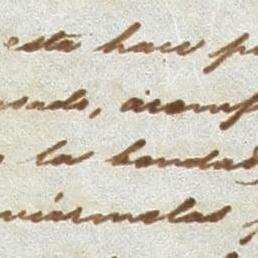 esta hace p
sado, acomp
la bondad
viármelas